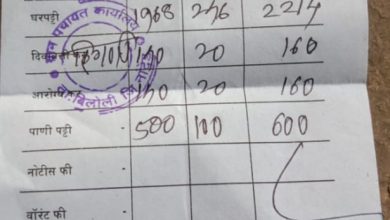 घरपट्टी 1968 246 2214
दिवाबत्ती 140 20 160
आरोग्य 140 20 160
पाणी पट्टी - 500 100 600
नोटीस फी -
वॉरंट फी -
पंचायत कार्यालय
बिलोली जि.